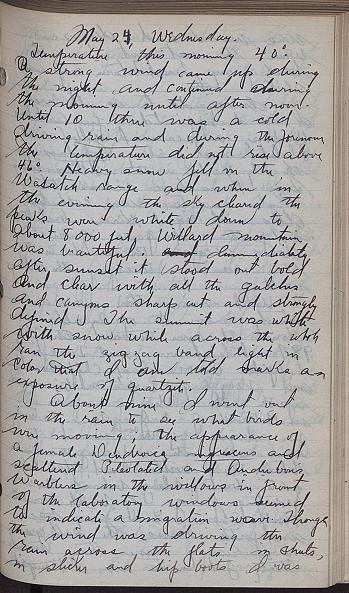 May 24, Wednesday.
Temperature this morning 40°.
A strong wind came up during
the night and continued during
the morning until after noon.
Until 10 there was a cold
driving rain and during the forenoon
the temperature did not rise above
46°. Heavy snow fell in the
Wasatch range and when in
the evening the sky cleared the
peaks were white down to
about 8000 feet. Willard mountain
was beautiful. Immediately
after sunset it stood out bold
and clear with all the gulches
and canyons sharp cut and strongly
defined. The summit was white
with snow while across the
ran the zig zag band, light in
color that I am told marks an
exposure of quartzite.
About nine I went out
in the rain to see what birds
were moving; the appearance of
a female Dendroica nigrescens and
scattered Pileolated and Audubon's
Warblers in the willows in front
of the laboratory windows seemed
to indicate a migration wave. Though
the wind was driving the
rain across the flats in sheets,
in slicker and hip boots I was